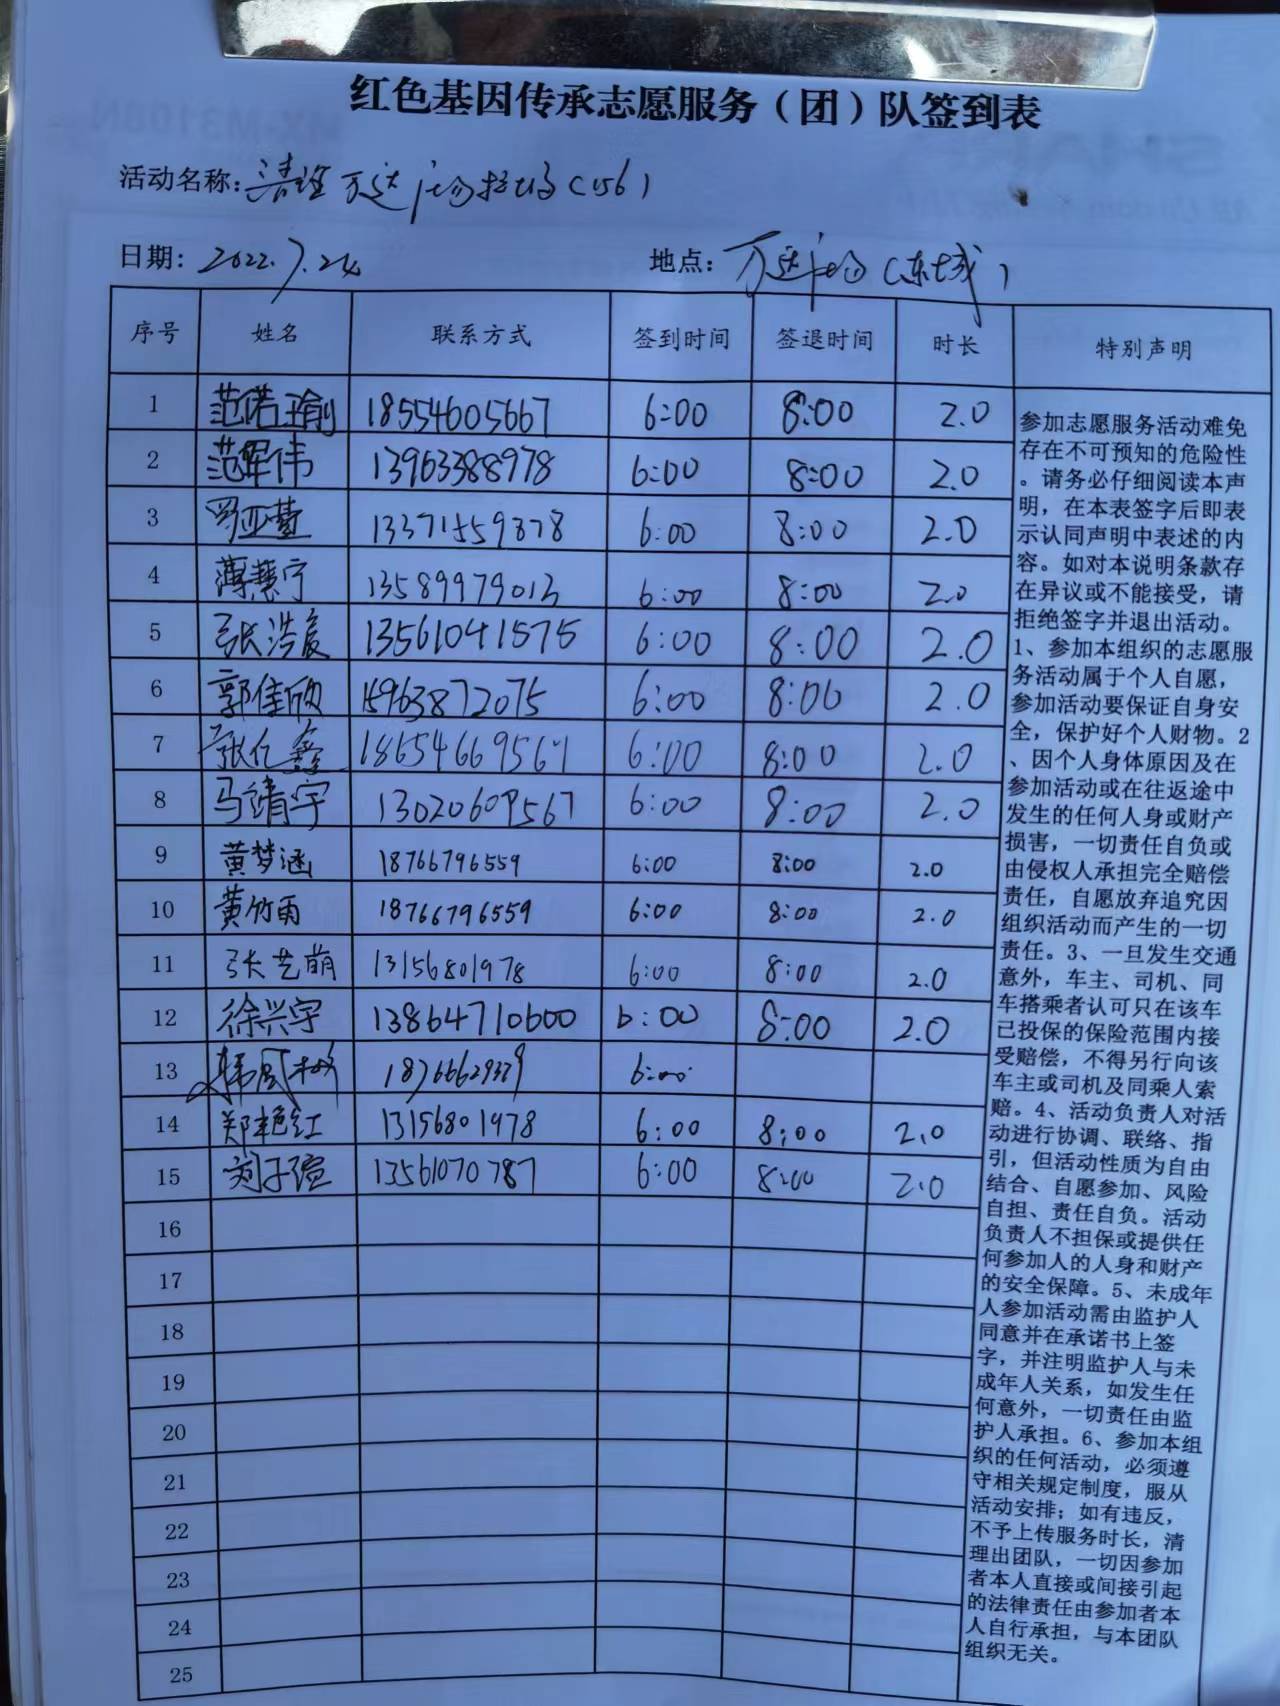 红色基因传承志愿服务（团）队签到表
活动名称：清理万达广场垃圾（156）
日期：2022.7.24 地点：万达广场（东城）
序号 姓名 联系方式 签到时间 签退时间 时长 特别声明
1 范诺瑜 18554605667 6:00 8:00 2.0
2 范军伟 13963388978 6:00 8:00 2.0
3 13371559878 6:00 8:00 2.0
4 薄慧宁 13589979013 6:00 8:00 2.0
5 张浩宸 13561041575 6:00 8:00 2.0
6 郭佳欣 15963872075 6:00 8:00 2.0
7 张亿鑫 18654669567 6:00 8:00 2.0
8 马靖宇 13020609567 6:00 8:00 2.0
9 黄梦涵 18766796559 6:00 8:00 2.0
10 黄竹雨 18766796559 6:00 8:00 2.0
11 张艺萌 13156801978 6:00 8:00 2.0
12 徐兴宇 13864710600 6:00 8:00 2.0
13 6:00
14 郑艳红 13156801978 6:00 8:00 2.0
15 刘子瑄 13561070787 6:00 8:00 2.0
16
17
18
19
20
21
22
23
24
25
参加志愿服务活动难免
存在不可预知的危险性
。请务必仔细阅读本声
明，在本表签字后即表
示认同声明中表述的内
容。如对本说明条款存
在异议或不能接受，请
拒绝签字并退出活动。
1、参加本组织的志愿服
务活动属于个人自愿，
参加活动要保证自身安
全，保护好个人财物。2
、因个人身体原因及在
参加活动或在往返途中
发生的任何人身或财产
损害，一切责任自负或
由侵权人承担完全赔偿
责任，自愿放弃追究因
组织活动而产生的一切
责任。3、一旦发生交通
意外，车主、司机、同
车搭乘者认可只在该车
已投保的保险范围内接
受赔偿，不得另行向该
车主或司机及同乘人索
赔。4、活动负责人对活
动进行协调、联络、指
引，但活动性质为自由
结合、自愿参加、风险
自担、责任自负。活动
负责人不担保或提供任
何参加人的人身和财产
的安全保障。5、未成年
人参加活动需由监护人
同意并在承诺书上签
字，并注明监护人与未
成年人关系，如发生任
何意外，一切责任由监
护人承担。6、参加本组
织的任何活动，必须遵
守相关规定制度，服从
活动安排；如有违反，
不予上传服务时长，清
理出团队，一切因参加
者本人直接或间接引起
的法律责任由参加者本
人自行承担，与本团队
组织无关。